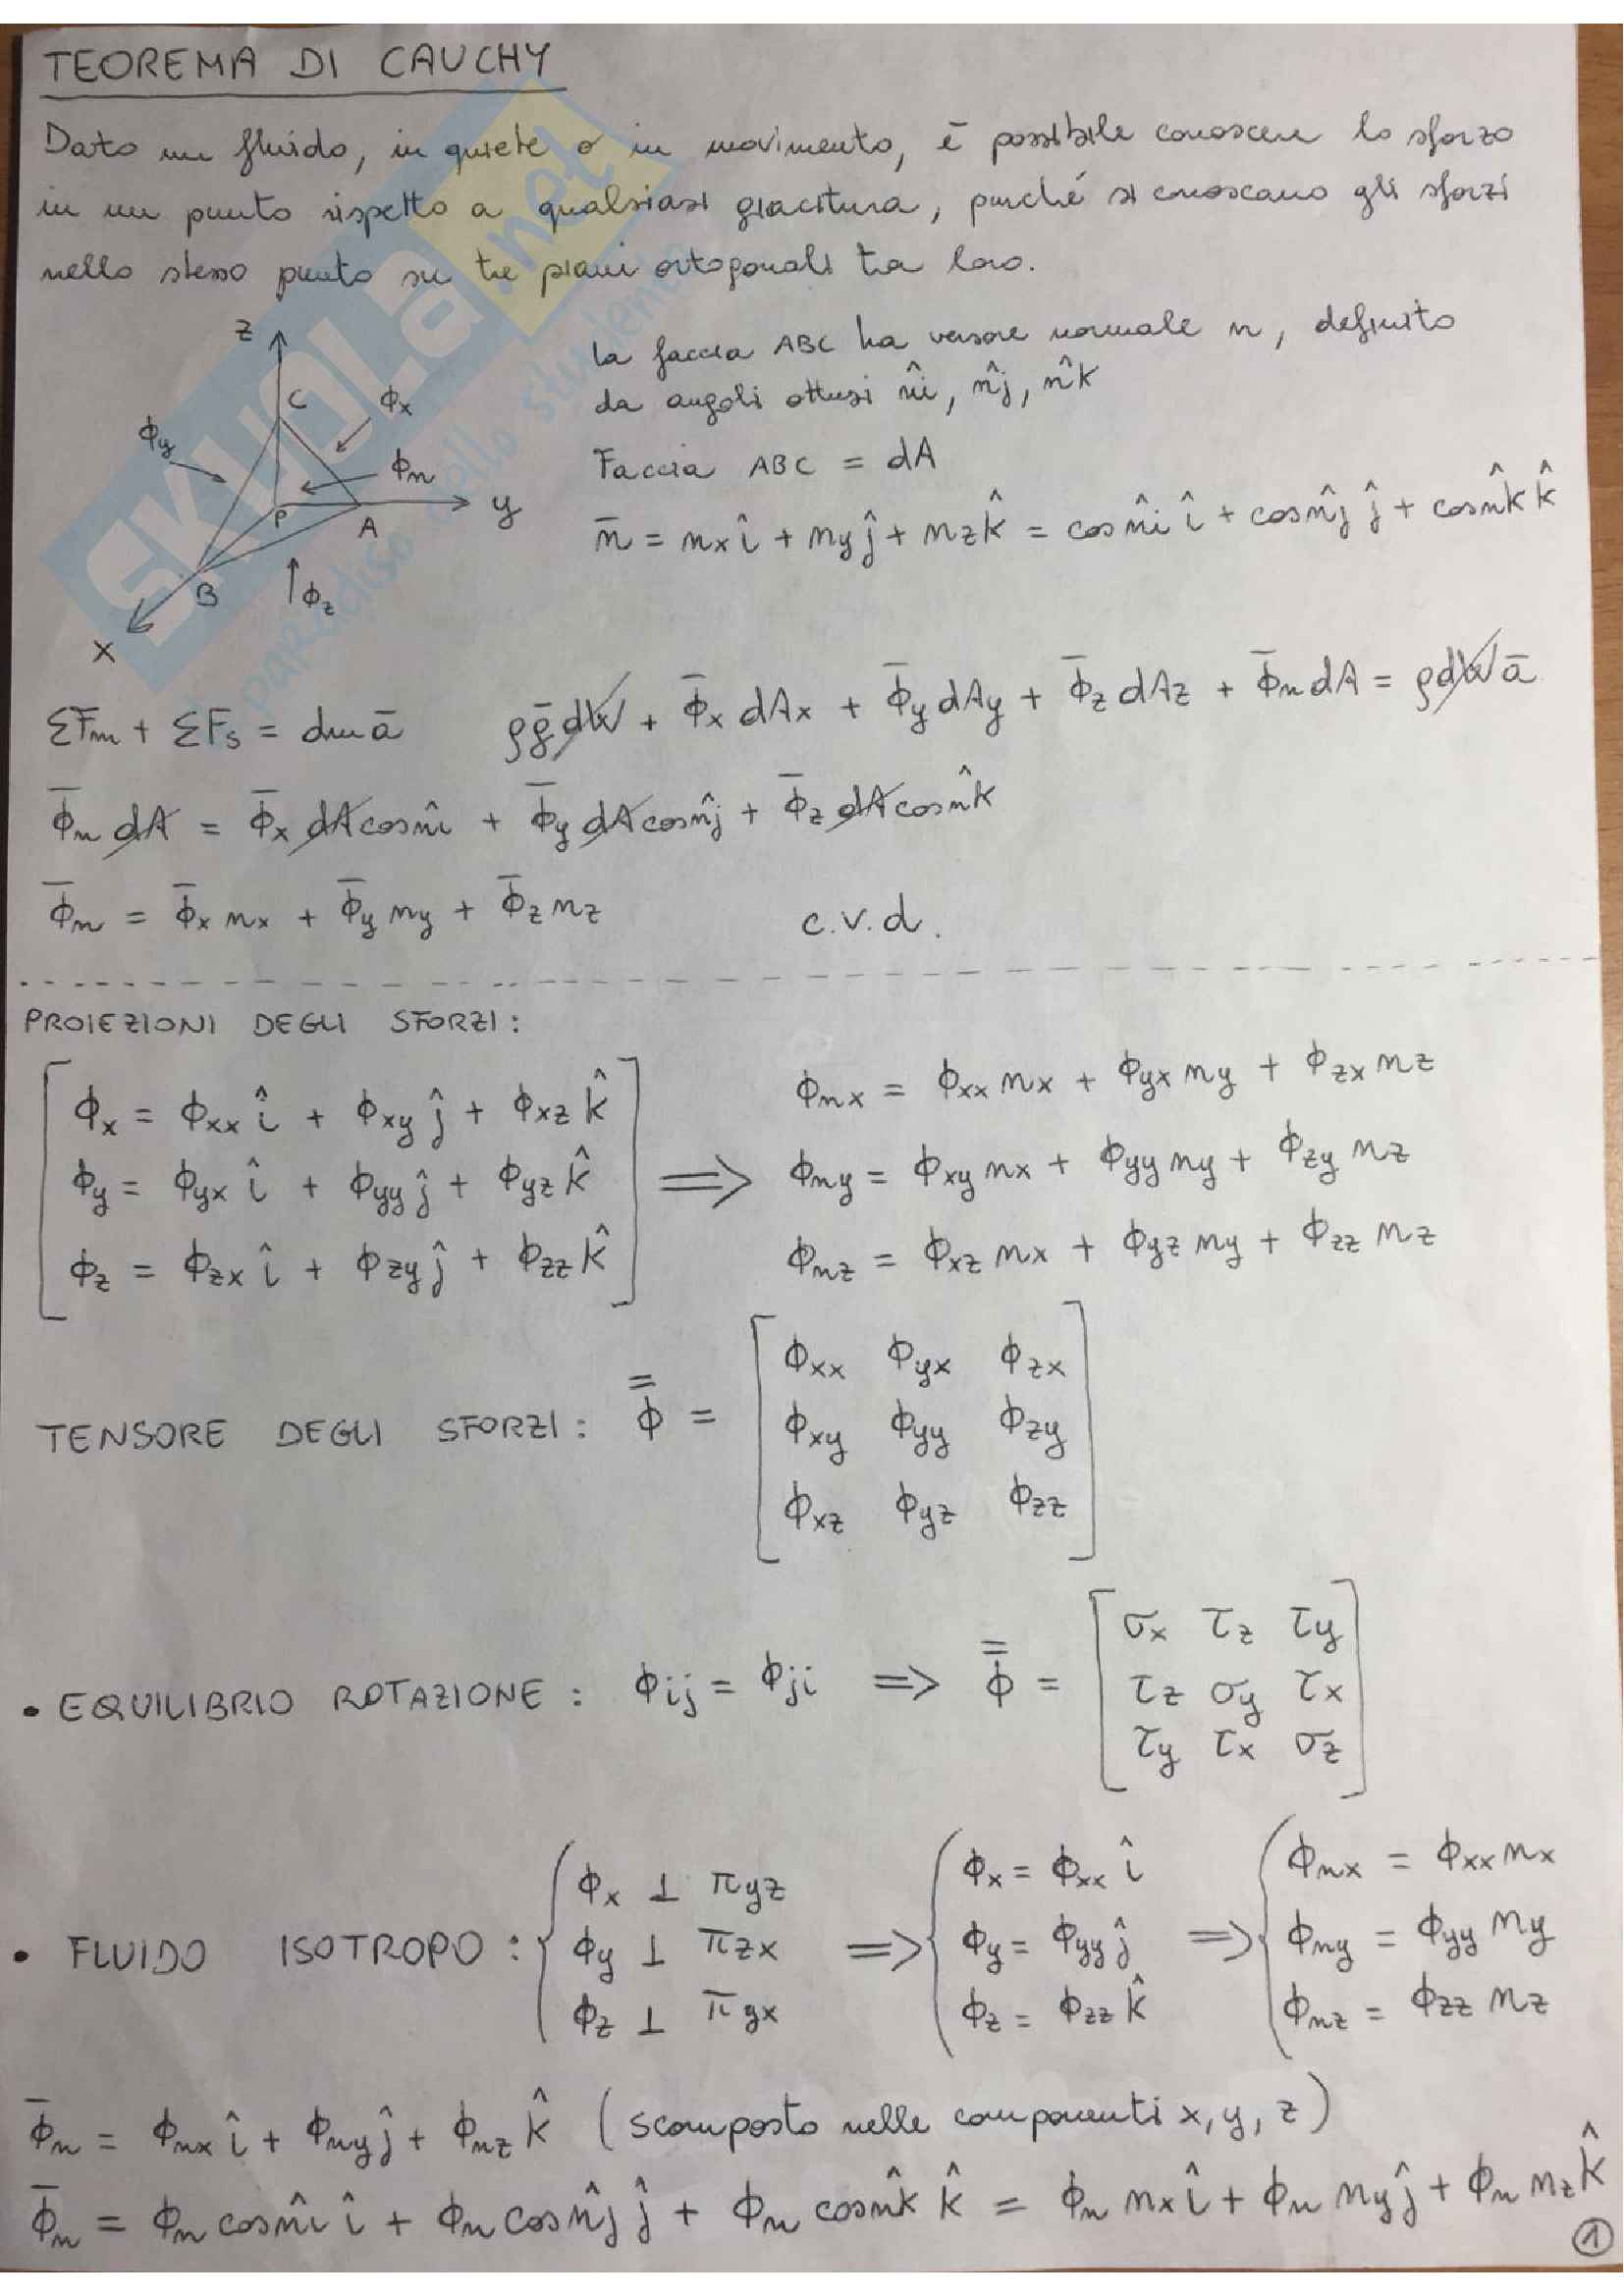 TEOREMA DI CAUCHY
Dato un fluido, in quiete o in movimento, è possibile conoscere lo sforzo
in un punto rispetto a qualsiasi giacitura, purché si conoscano gli sforzi
nello stesso punto su tre piani ortogonali tra loro.
z
C
ϕx
ϕy
ϕn
P
A
y
B
ϕz
x
la faccia ABC ha versore normale n, definito
da angoli ottusi n̂i, n̂j, n̂k
Faccia ABC = dA
n̅ = nx î + ny ĵ + nz k̂ = cos n̂i î + cos n̂j ĵ + cos n̂k k̂
ΣF̅m + ΣF̅s = dm a̅   ρg̅dW + ϕ̅x dAx + ϕ̅y dAy + ϕ̅z dAz + ϕ̅n dA = ρdW a̅
ϕ̅n dA = ϕ̅x dA cos n̂i + ϕ̅y dA cos n̂j + ϕ̅z dA cos n̂k
ϕ̅n = ϕ̅x nx + ϕ̅y ny + ϕ̅z nz   c.v.d.
PROIEZIONI DEGLI SFORZI:
ϕx = ϕxx î + ϕxy ĵ + ϕxz k̂   ϕnx = ϕxx nx + ϕyx ny + ϕzx nz
ϕy = ϕyx î + ϕyy ĵ + ϕyz k̂ ⟹ ϕny = ϕxy nx + ϕyy ny + ϕzy nz
ϕz = ϕzx î + ϕzy ĵ + ϕzz k̂   ϕnz = ϕxz nx + ϕyz ny + ϕzz nz
ϕxx ϕyx ϕzx
TENSORE DEGLI SFORZI: ϕ̿ = ϕxy ϕyy ϕzy
ϕxz ϕyz ϕzz
σx τz τy
• EQUILIBRIO ROTAZIONE: ϕij = ϕji ⟹ ϕ̿ = τz σy τx
τy τx σz
ϕx ⊥ πyz   ϕx = ϕxx î   ϕnx = ϕxx nx
• FLUIDO ISOTROPO: ϕy ⊥ πzx ⟹ ϕy = ϕyy ĵ ⟹ ϕny = ϕyy ny
ϕz ⊥ πyx   ϕz = ϕzz k̂   ϕnz = ϕzz nz
ϕ̅n = ϕnx î + ϕny ĵ + ϕnz k̂ (scomposto nelle componenti x, y, z)
ϕ̅n = ϕn cos n̂i î + ϕn cos n̂j ĵ + ϕn cos n̂k k̂ = ϕn nx î + ϕn ny ĵ + ϕn nz k̂
1
SKUOLA.net
paradiso dello studente